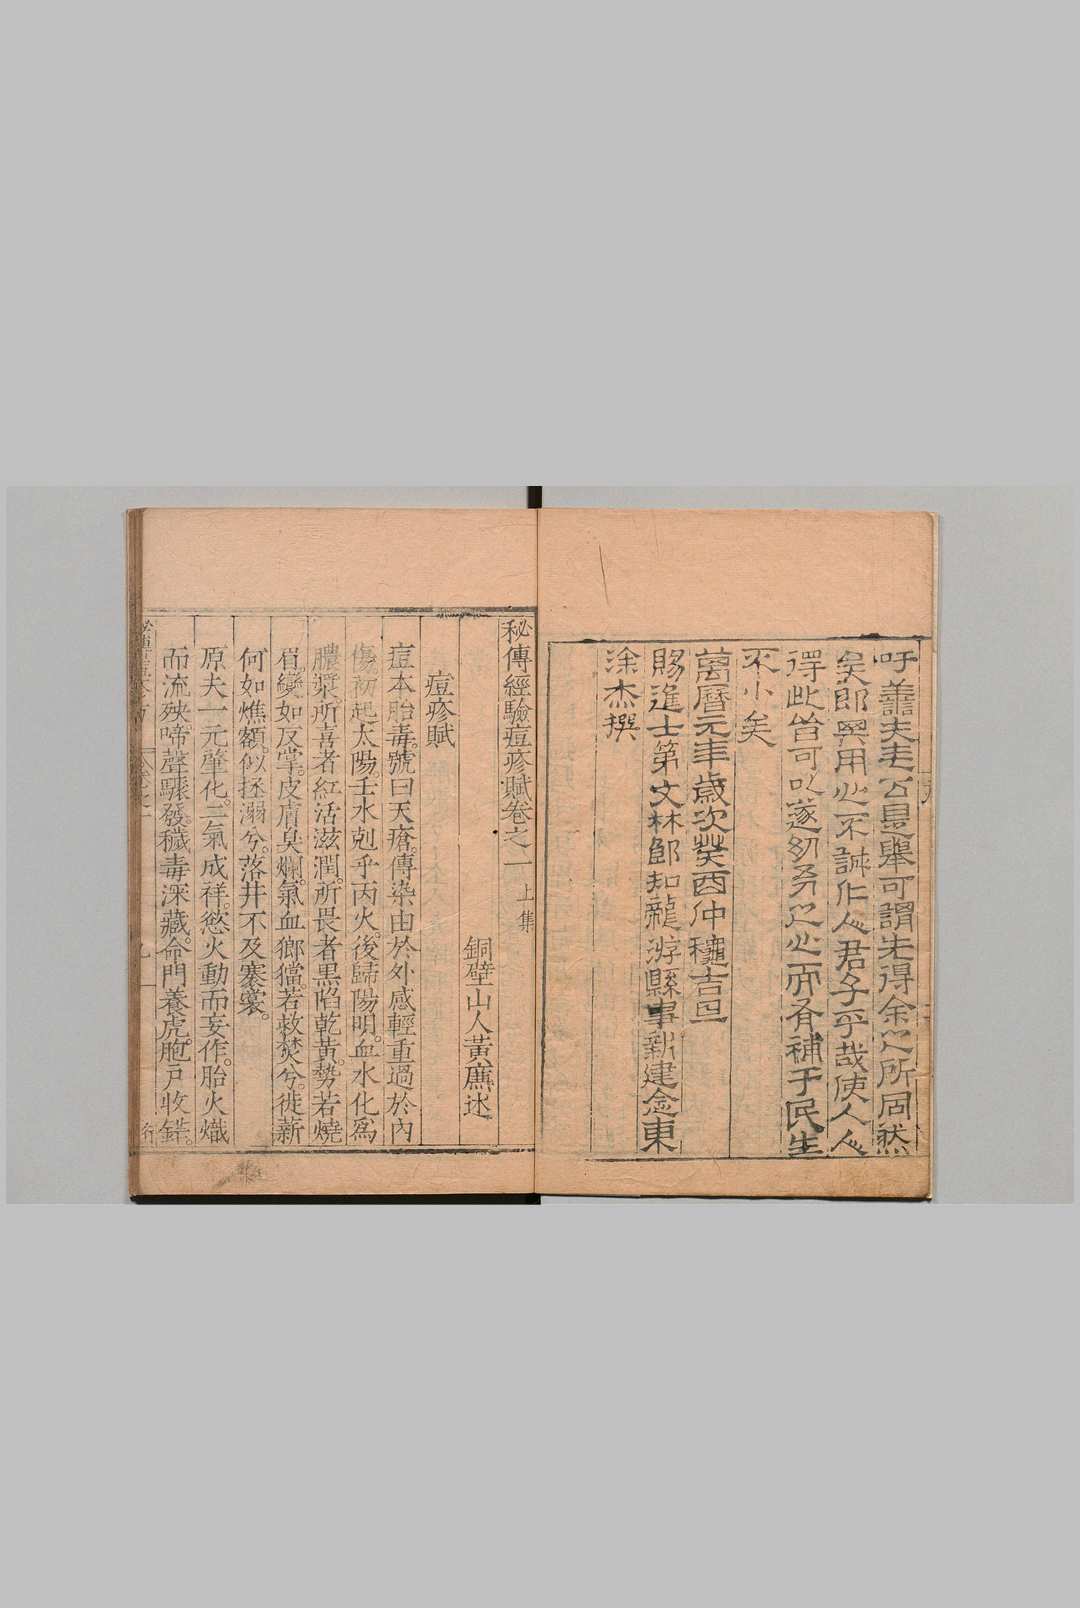 吁善夫走公是舉可謂先得余之所同然
矣即興用心不誠仁人君子乎哉使人人
得此皆可以遂幼吾之心而有補于民生
不小矣
萬曆元年歲次癸酉仲穐吉旦
賜進士第文林郎知龍游縣事新建念東
涂杰撰
秘傳經驗痘疹賦卷之一 上集
銅壁山人黃廉述
痘疹賦
痘本胎毒。號曰天瘡。傳染由於外感輕重過於內
傷。初起太陽壬水剋乎丙火。後歸陽明。血水化為
膿漿。所喜者紅活滋潤。所畏者黑陷乾黃。勢若燒
眉。變如反掌。皮膚臭爛。氣血鄉獚。若救焚兮。徙薪
何如燋額。似拯溺兮。落井不及褰裳。
原夫一元肇化。二氣成祥。慾火動而妄作。胎火熾
而流殃。啼聲驟發。穢毒深藏。命門養虎。胞戶收鋩。